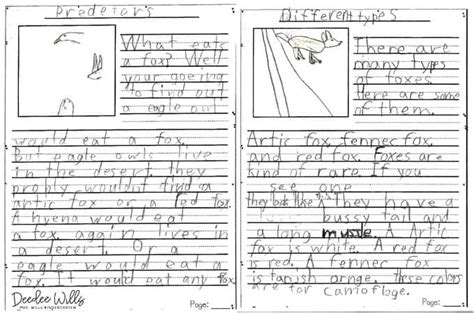 Predetors
What eats
a fox? Well
your goeing
to find out
a eagle owl
would eat a fox.
But eagle owls live
in the desert. they
probly wouldnt find a
artic fox or a red fox.
A hyena would eat
a fox. again lives in
a desert. Or a
eagle would eat a
fox. It would eat any fox
Deedee Wills
MRS. WILLS KINDERGARTEN
Page:
Different types
There are
many types
of foxes.
Here are some
of them.
Artic fox, fennec fox,
and red fox. Foxes are
kind of rare. If you
see one
they look like they have a
bussy tail and
a long A Artic
fox is white. A red fox
is red. A fennec fox
is tanish ornge. these colors
are for camofloge.
Page: